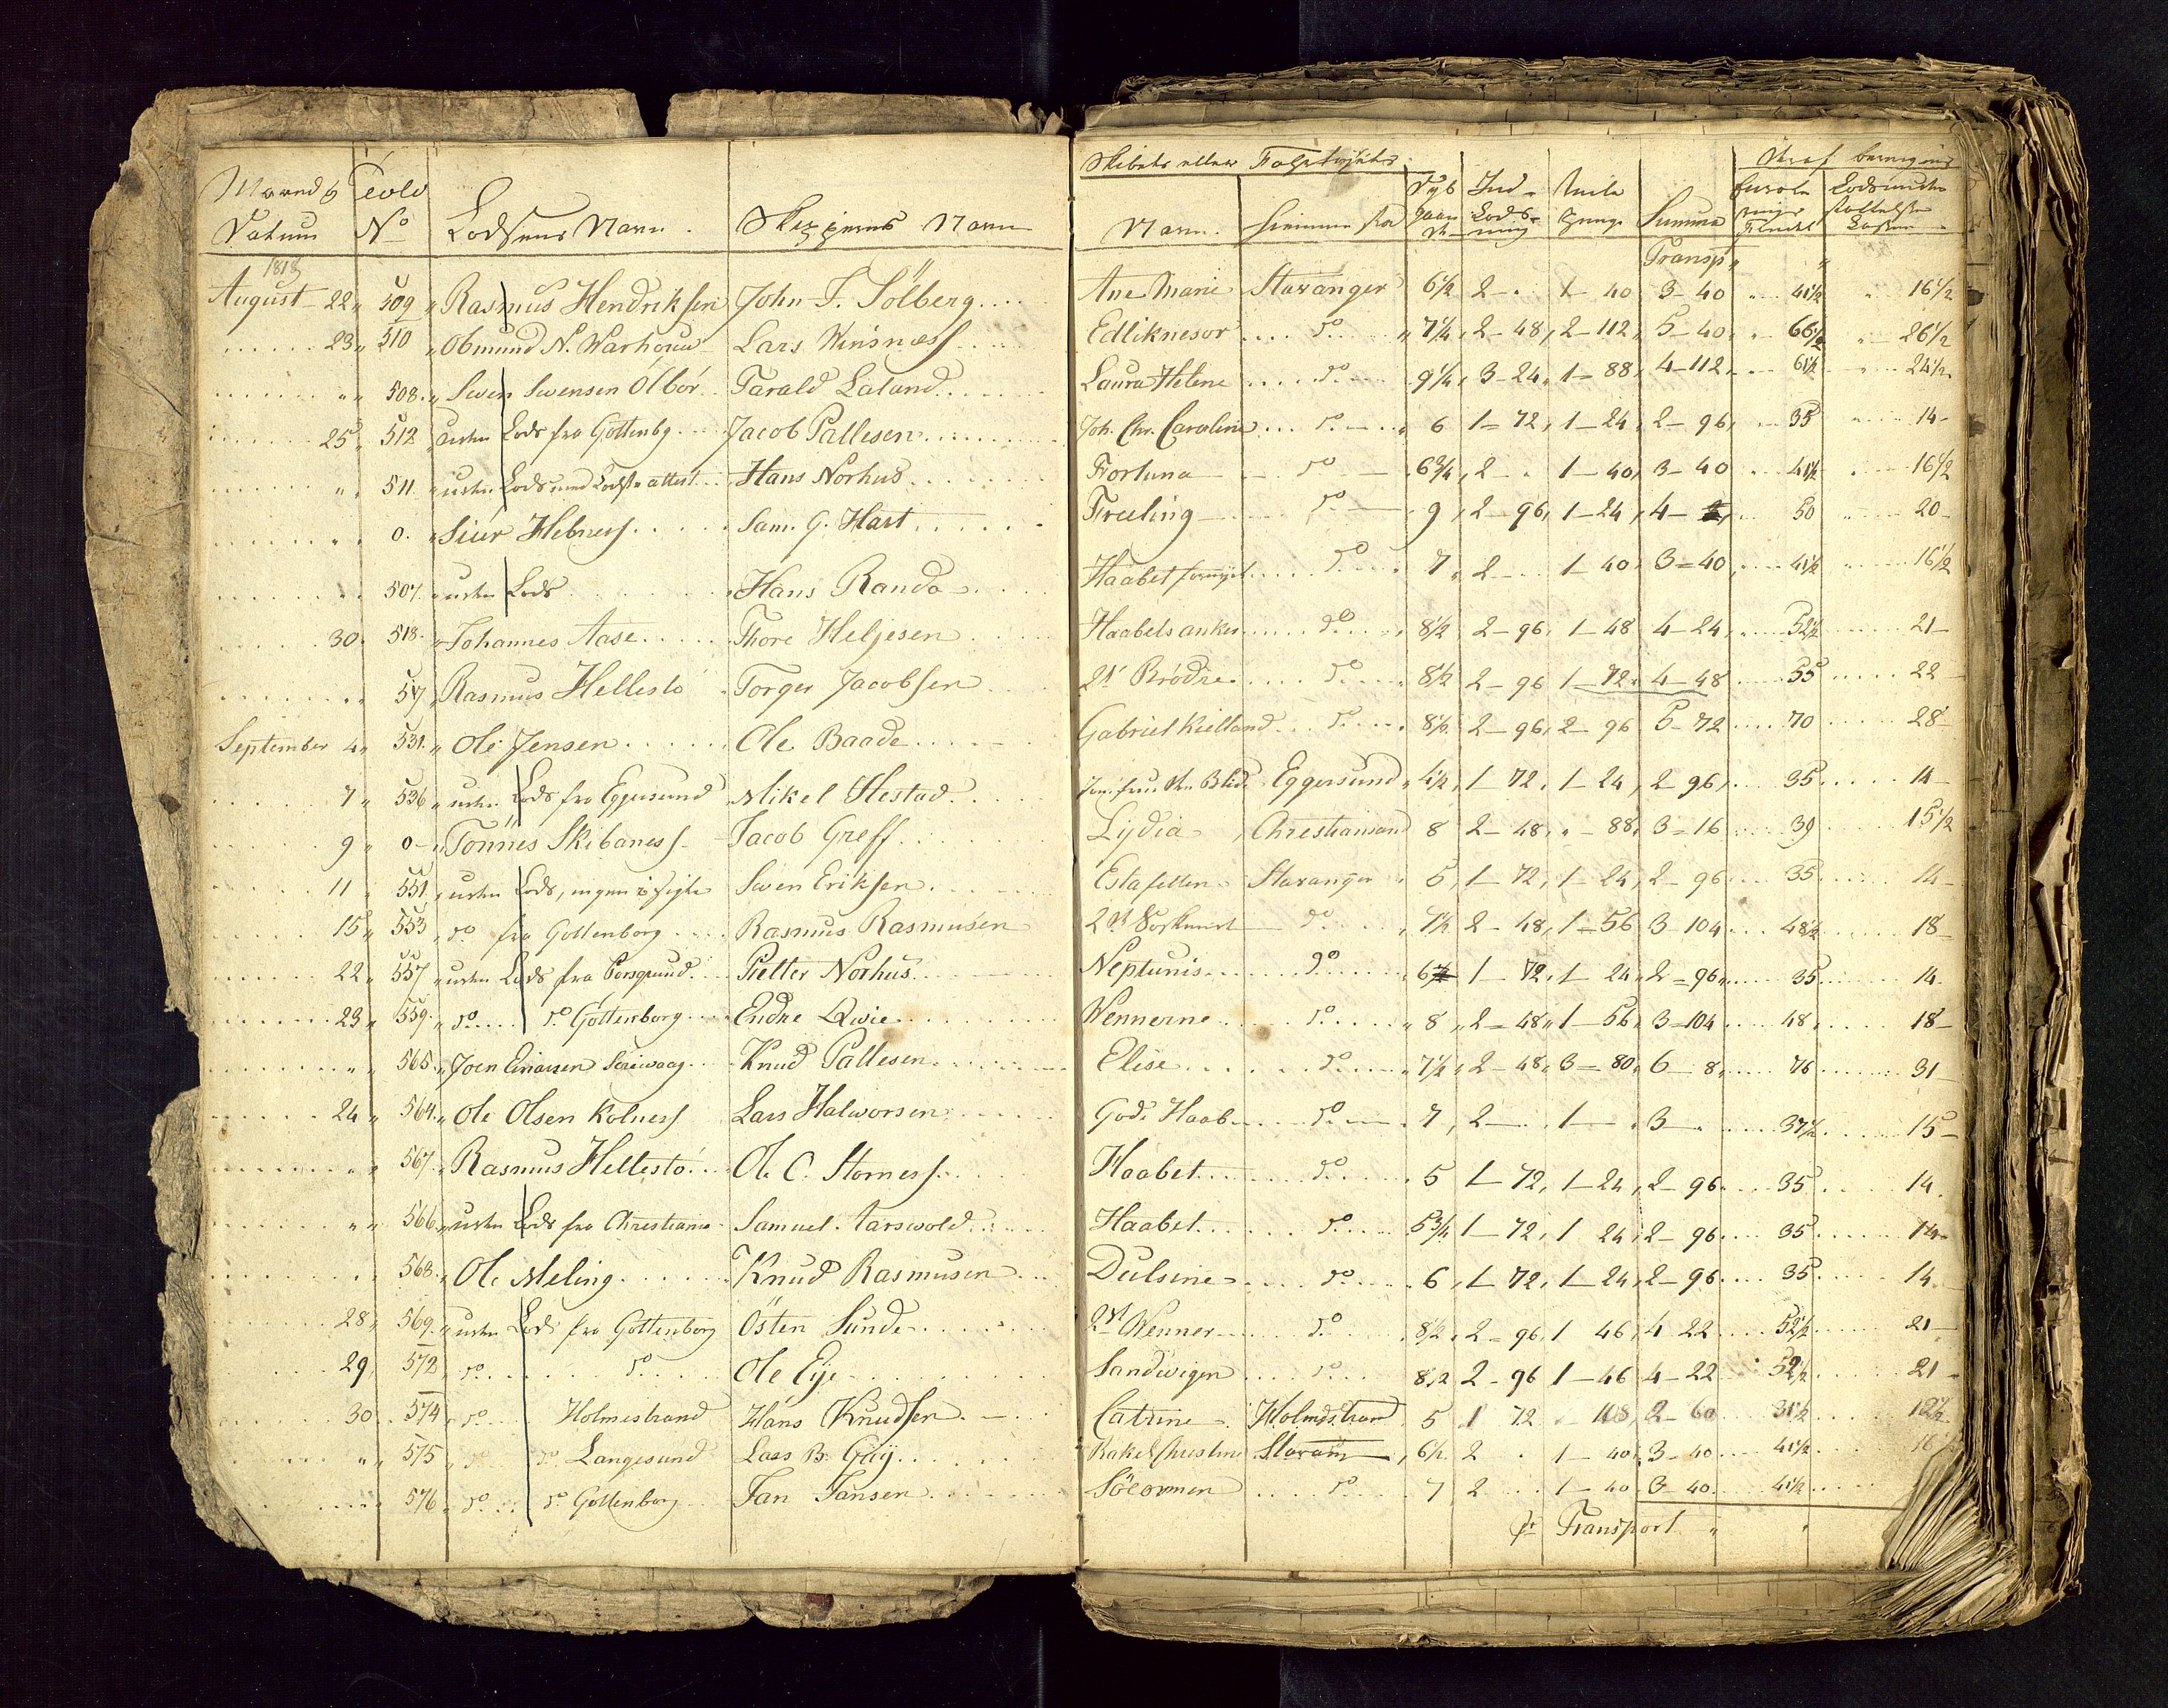 Maaned & Told Skibets eller Fartøiets
Datum No Lodsens Navn. Skipperens Navn Navn. Summa
1818 Transp
August 22 509 Rasmus Hendriksen John T. Sölberg Ane Marie Stavanger 6½ 2 - 1-40 3-40 41½ 16½
23 510 Obmund N. Warhoug Lars Winsnæss do 7¼ 2-48 2-112 5-40 66½ 26½
508 Swen Swensen Ölbör Tarald Laland Laura Helene do 9¼ 3-24 1-88 4-112 61½ 24½
25 512 uden Lods fra Gottenbg Jacob Pallesen Joh. Chr. Caroline do 6 1-72 1-24 2-96 35 14
511 uden Lods med Lods attest Hans Norhus Fortuna do 6¾ 2 1-40 3-40 41½ 16½
0 Siur Hebness Sam. G. Hart Freeling do 9 2-96 1-24 4- 50 20
507 uden Lods Hans Randa Haabet do 7 2 1-40 3-40 41½ 16½
30 518 Johannes Aase Thore Heljesen Haabets anker do 8½ 2-96 1-48 4-24 52½ 21
517 Rasmus Hellestö Torger Jacobsen Brödre do 8½ 2-96 1-72 4-48 55 22
September 4 531 Ole Jensen Ole Baade Gabriel Kielland do 8½ 2-96 2-96 5-72 70 28
7 536 uden Lods fra Eggersund Mikel Hestad Eggersund 4½ 1-72 1-24 2-96 35 14
9 0 Tönnes Skibaness Jacob Greff Lijdia Christiansand 8 2-48 - 88 3-16 39 15½
11 551 uden Lods, ingen i sigte Swen Eriksen Estafetten Stavanger 5 1-72 1-24 2-96 35 14
15 553 do fra Gottenborg Rasmus Rasmusen do 7½ 2-48 1-56 3-104 48½ 18
22 557 uden Lods fra Porsgrund Pietter Norhus Neptunis do 6 1-72 1-24 2-96 35 14
23 559 do do Göttenborg Endre Qwie Wennerne do 8 2-48 1-56 3-104 48 18
565 Joen Einarsen Knud Pallesen Elise do 7½ 2-48 3-80 6-8 76 31
24 564 Ole Olsen Kolness Lars Halworsen Gode Haab do 7 2 1 3 37½ 15
567 Rasmus Hellestö Ole C. Storness Haabet do 5 1-72 1-24 2-96 35 14
566 uden Lods fra Christiania Samuel Aarswold Haabet do 5¾ 1-72 1 24 2-96 35 14
568 Ole Meling Knud Rasmusen Dulsine do 6 1-72 1-24 2-96 35 14
28 569 uden Lods fra Gottenborg Östen Sunde Wenner do 8½ 2-96 1 46 4 22 52½ 21
29 572 do do Ole Eije Sandwigen do 8½ 2-96 1-46 4-22 52½ 21
30 574 do Holmestrand Hans Knudsen Catrine Holmestrand 5 1 72 - 108 2-60 31½ 12½
575 do do Langesund Lars B. Gaij Rakel Christine Stavang 6½ 2 1-40 3-40 41½ 16
576 do do Gottenborg Jan Jansen Söeormen do 7 2 1-40 3-40 41½
Transport